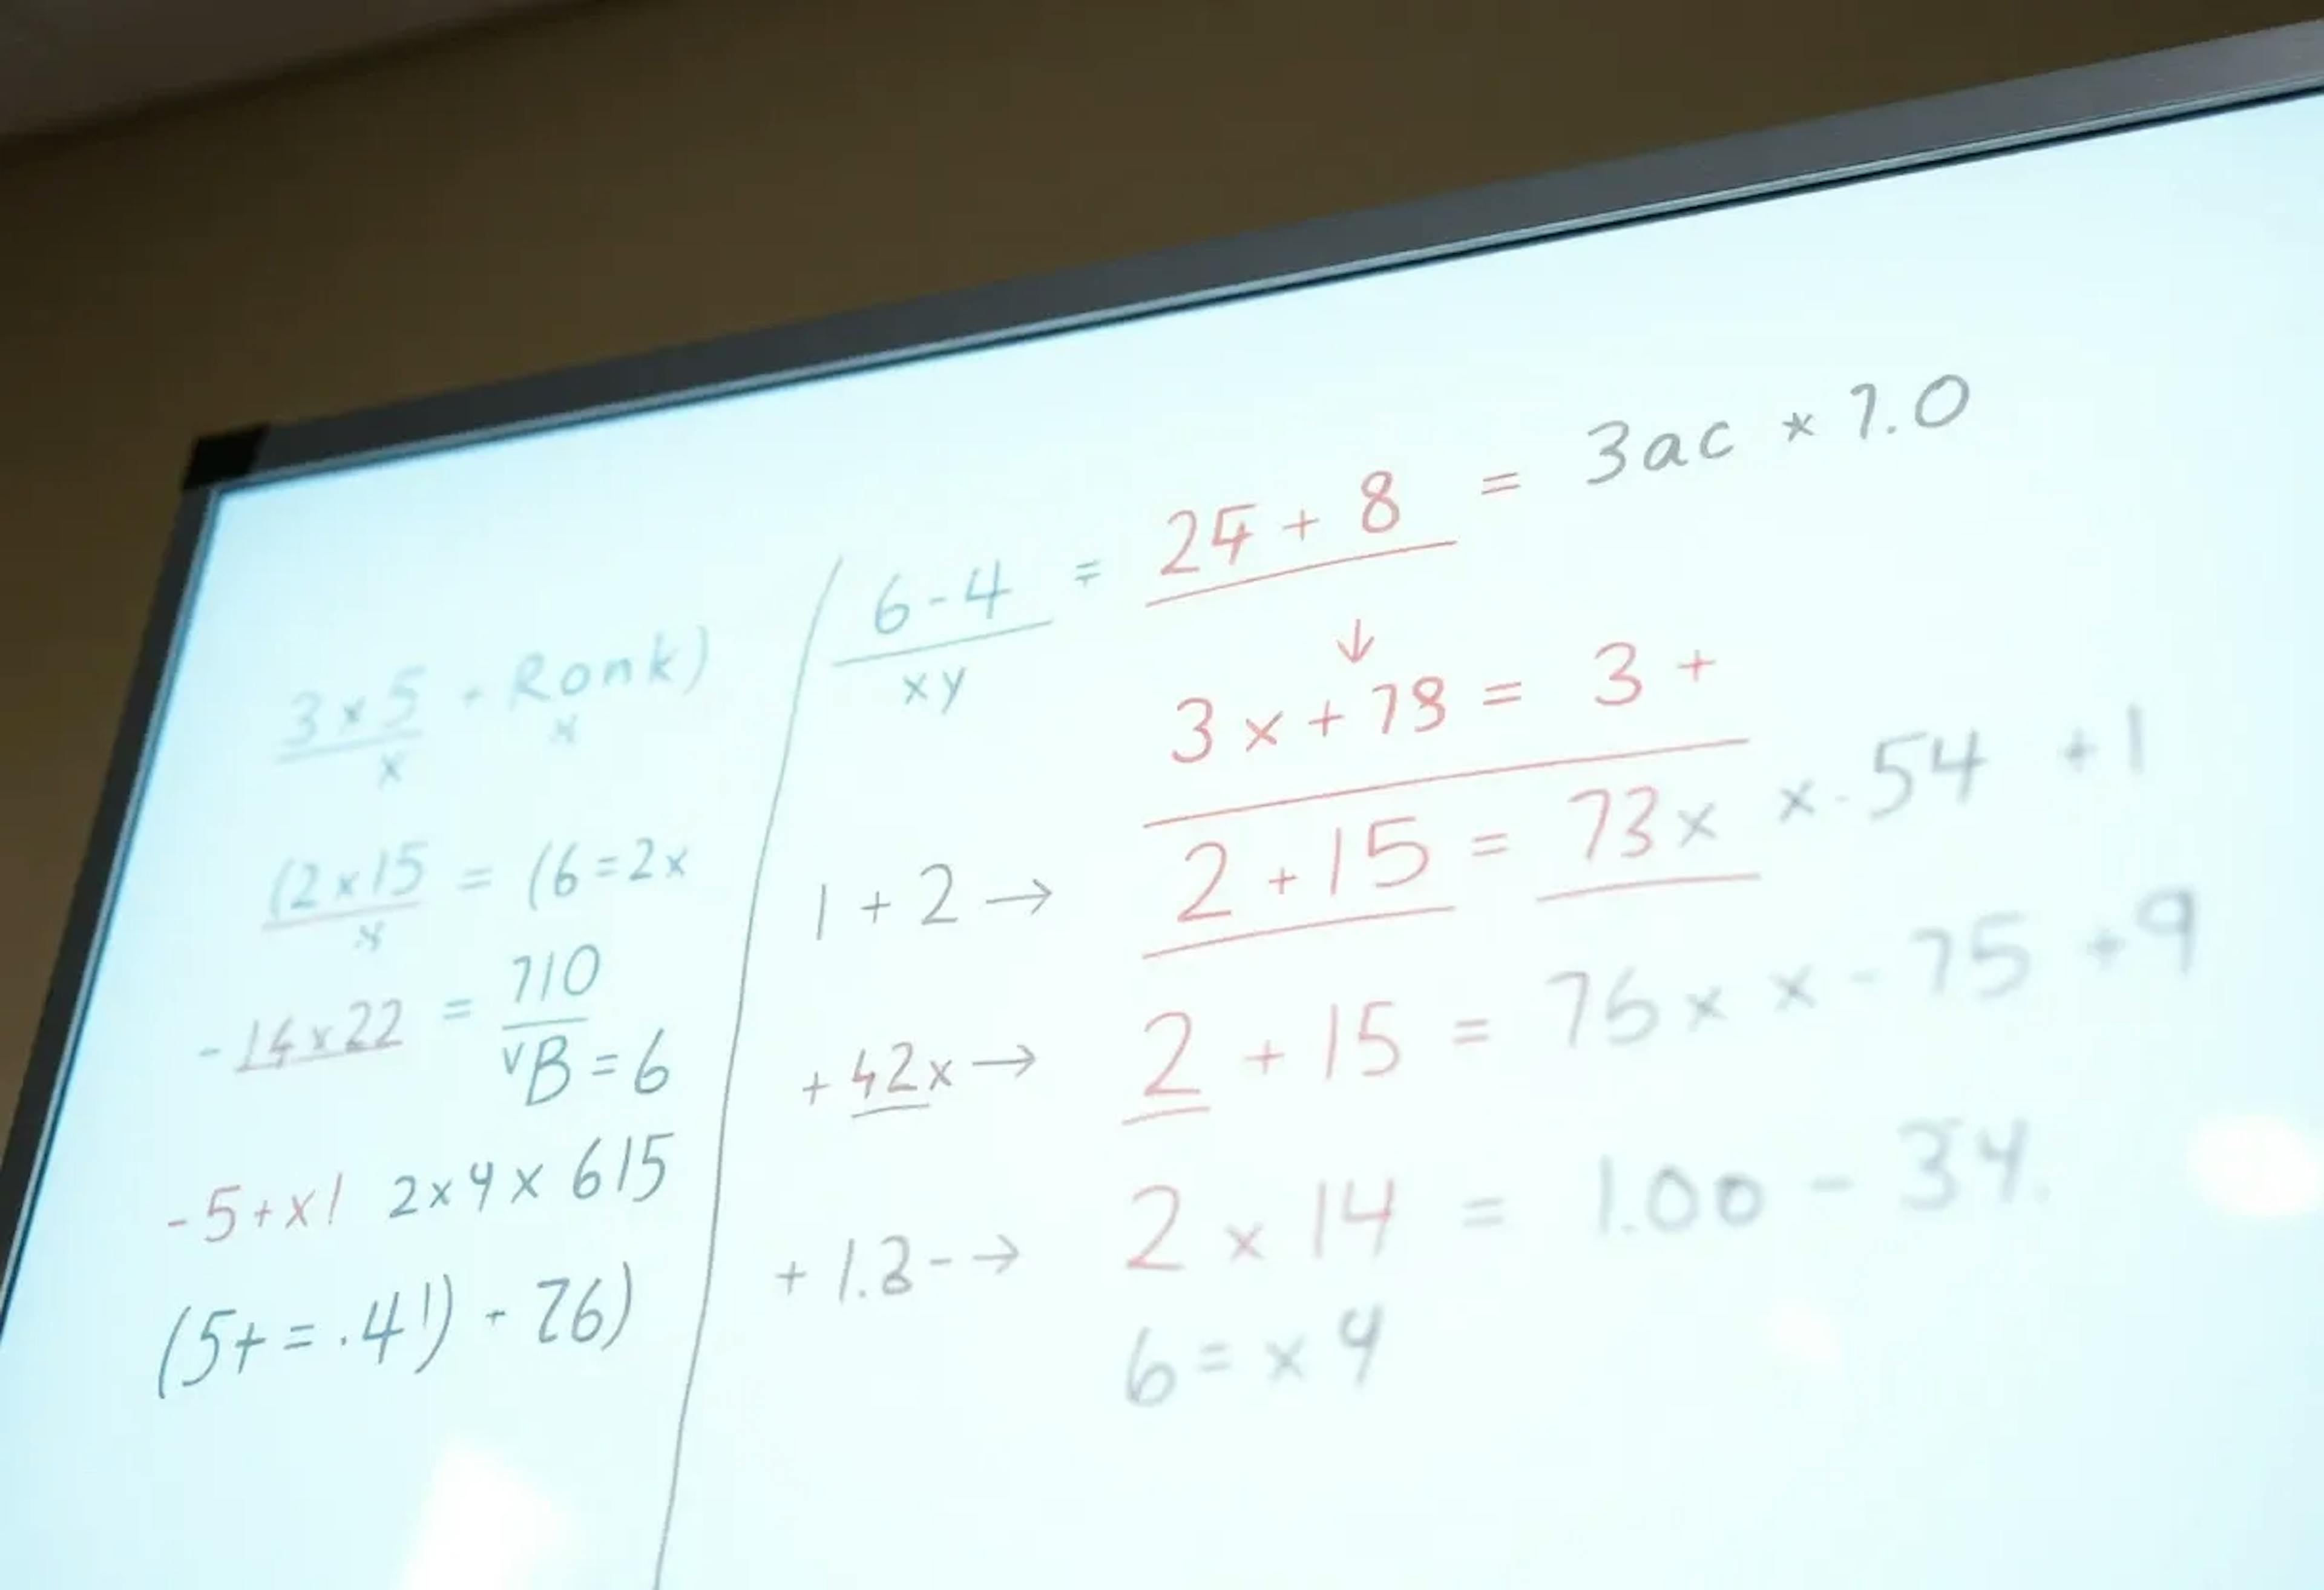 3 x 5 - Ronk)
x x
(2 x 15 = (6 = 2x
x
- 14 x 22 = 710
VB = 6
- 5 + x! 2 x 4 x 615
(5 + = .4!) - 76)
6 - 4 = 24 + 8 = 3ac * 7.0
xy
↓
3x + 78 = 3 +
1 + 2 → 2 + 15 = 73x x - 54 + 1
+ 42x → 2 + 15 = 76x x - 75 + 9
+ 1.3 - → 2 x 14 = 1.00 - 34.
6 = x 4